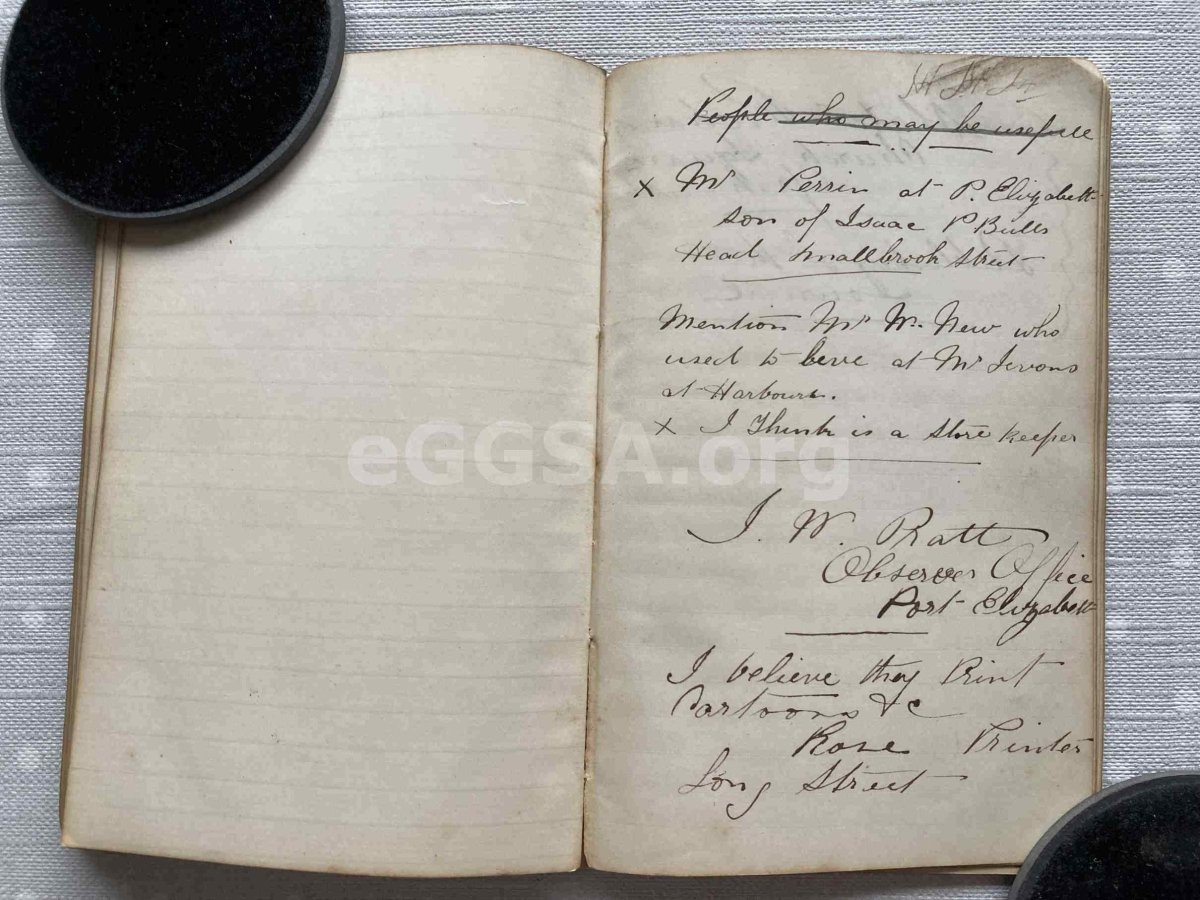 People who may be usefull
x Mr Perrin at P. Elizabeth
son of Isaac P Bulls
Head Smallbrook Street
Mention Mr Wm. New who
used to beve at Mr Jevons
at Harbourn.
x I Think is a Store keeper
eGGSA.org
J. W. Pratt
Observer Office
Port Elizabeth
I believe they Print
Cartoons & c
Rose Printer
Long Street